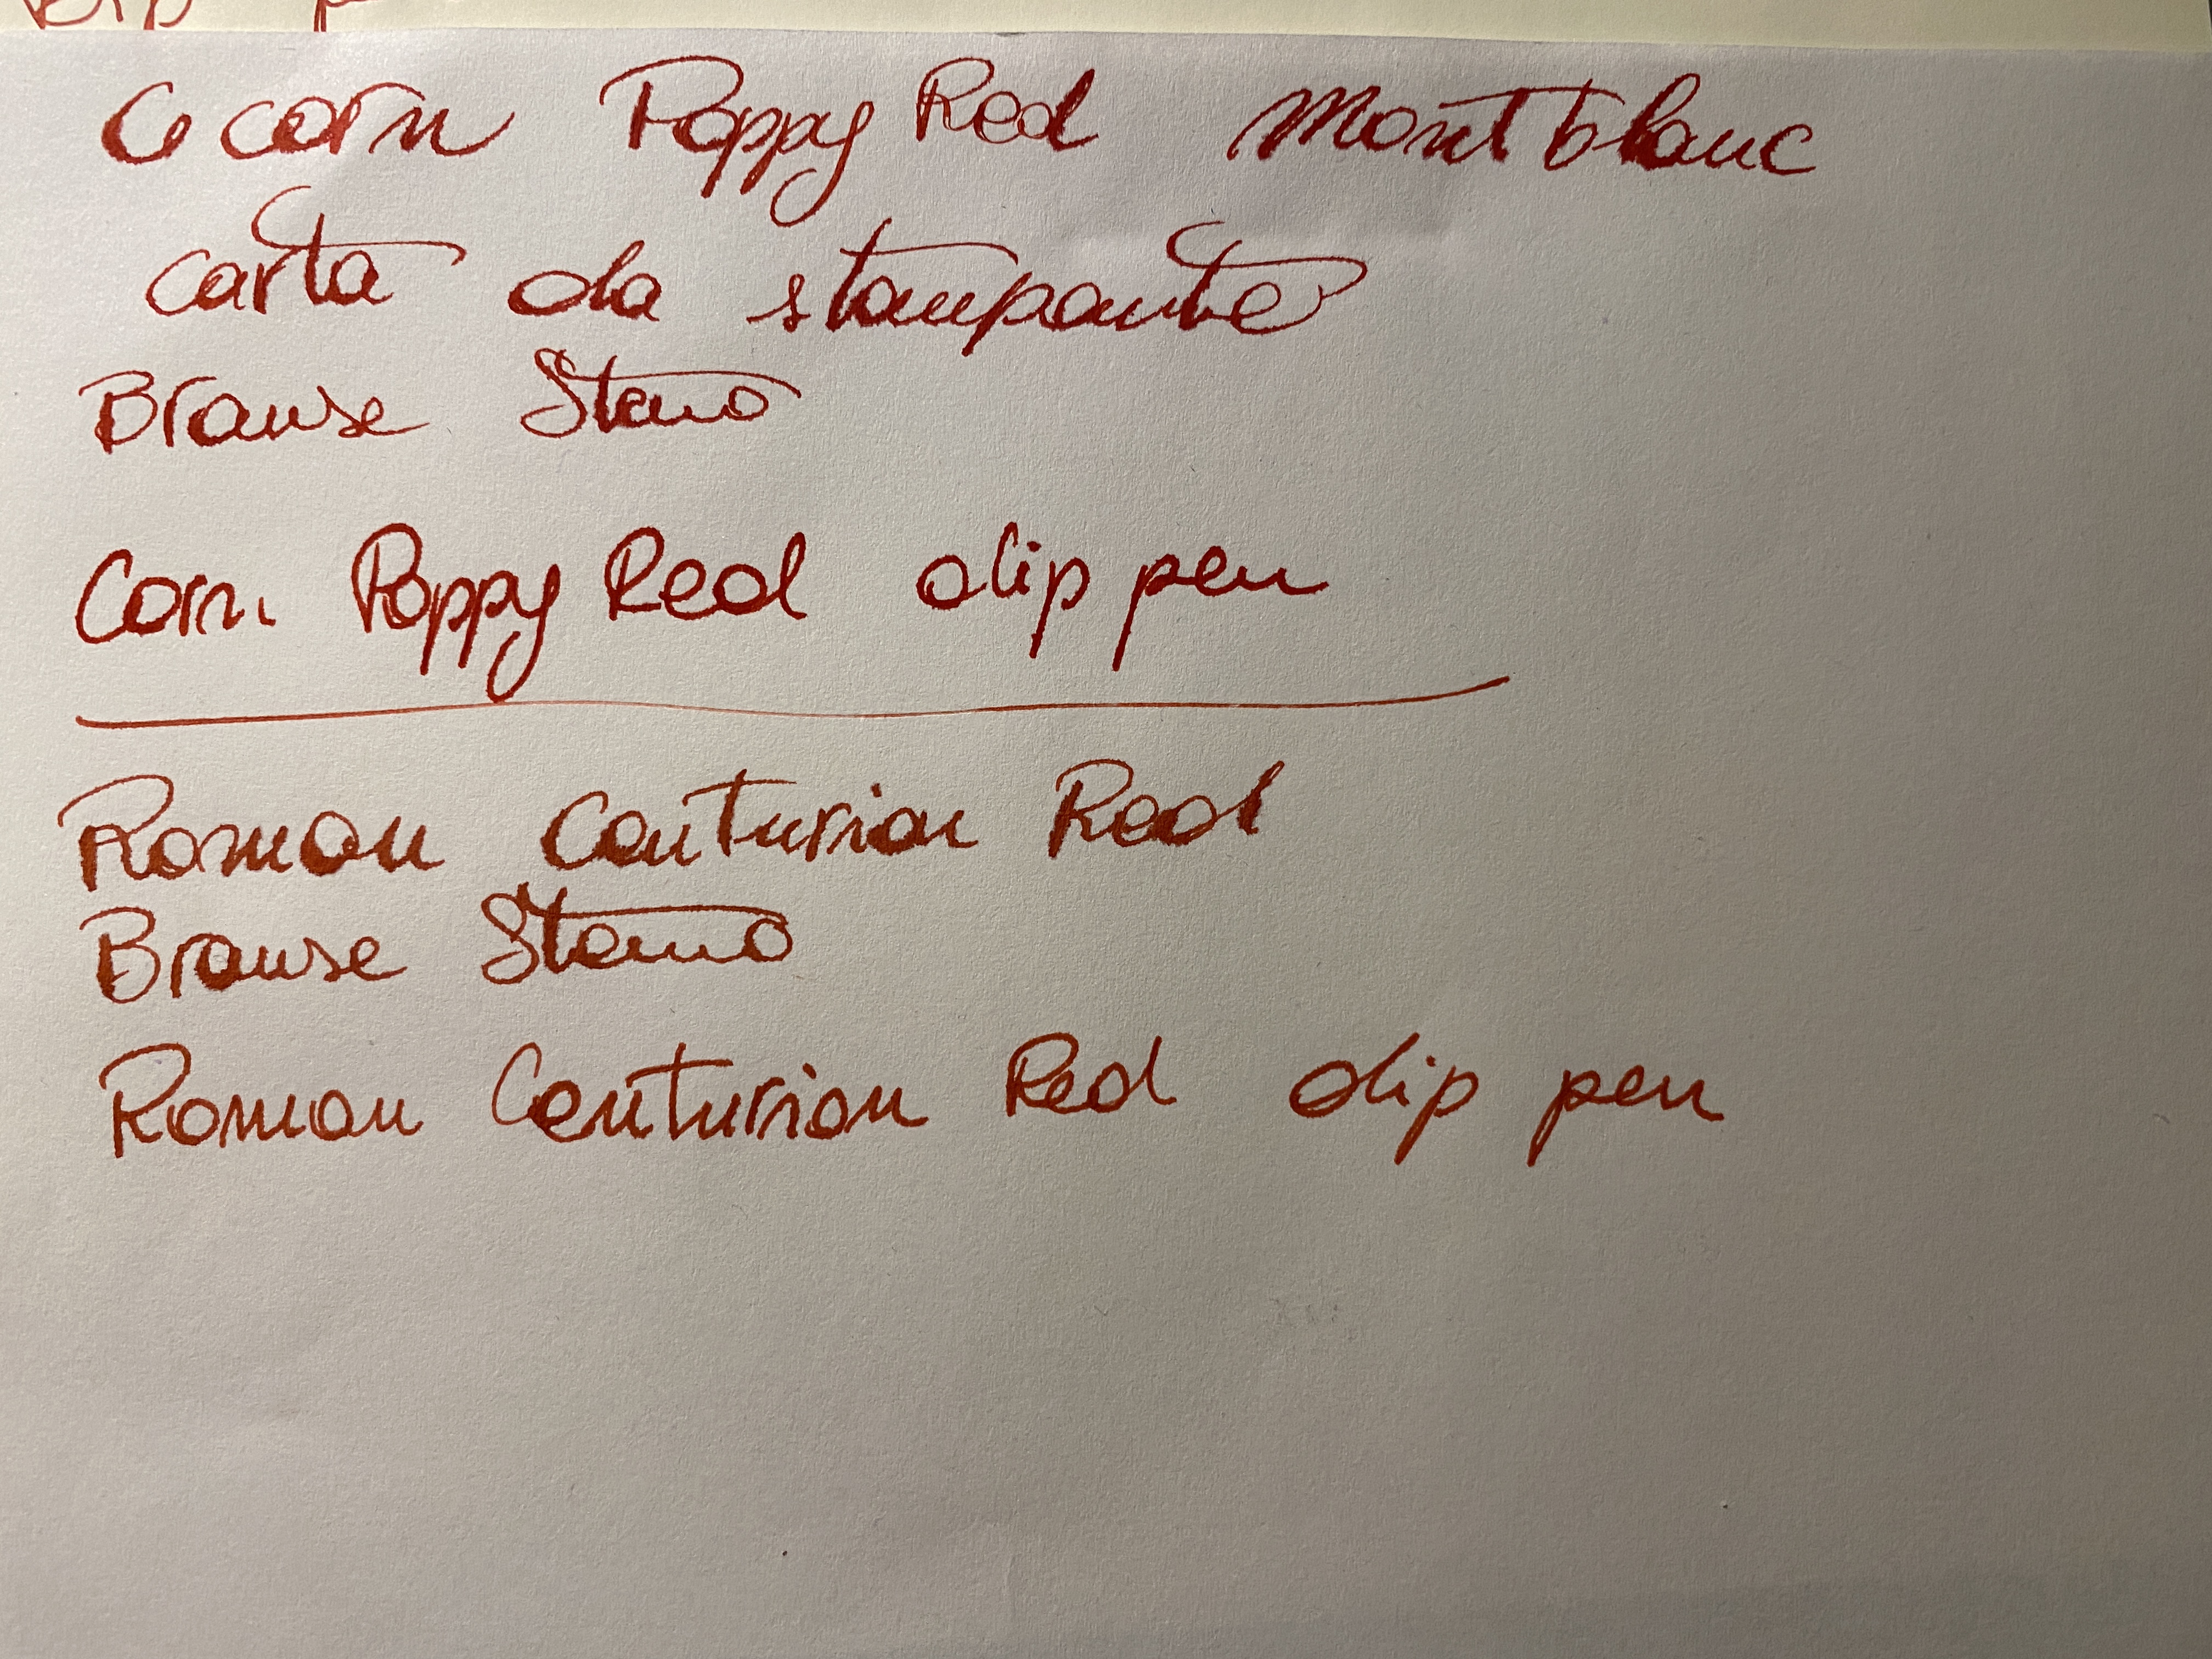 Co corn Poppy Red Montblanc
carta da stampante
Brause Steno
Corn Poppy Red dip pen
Roman Centurion Red
Brause Steno
Roman Centurion Red dip pen